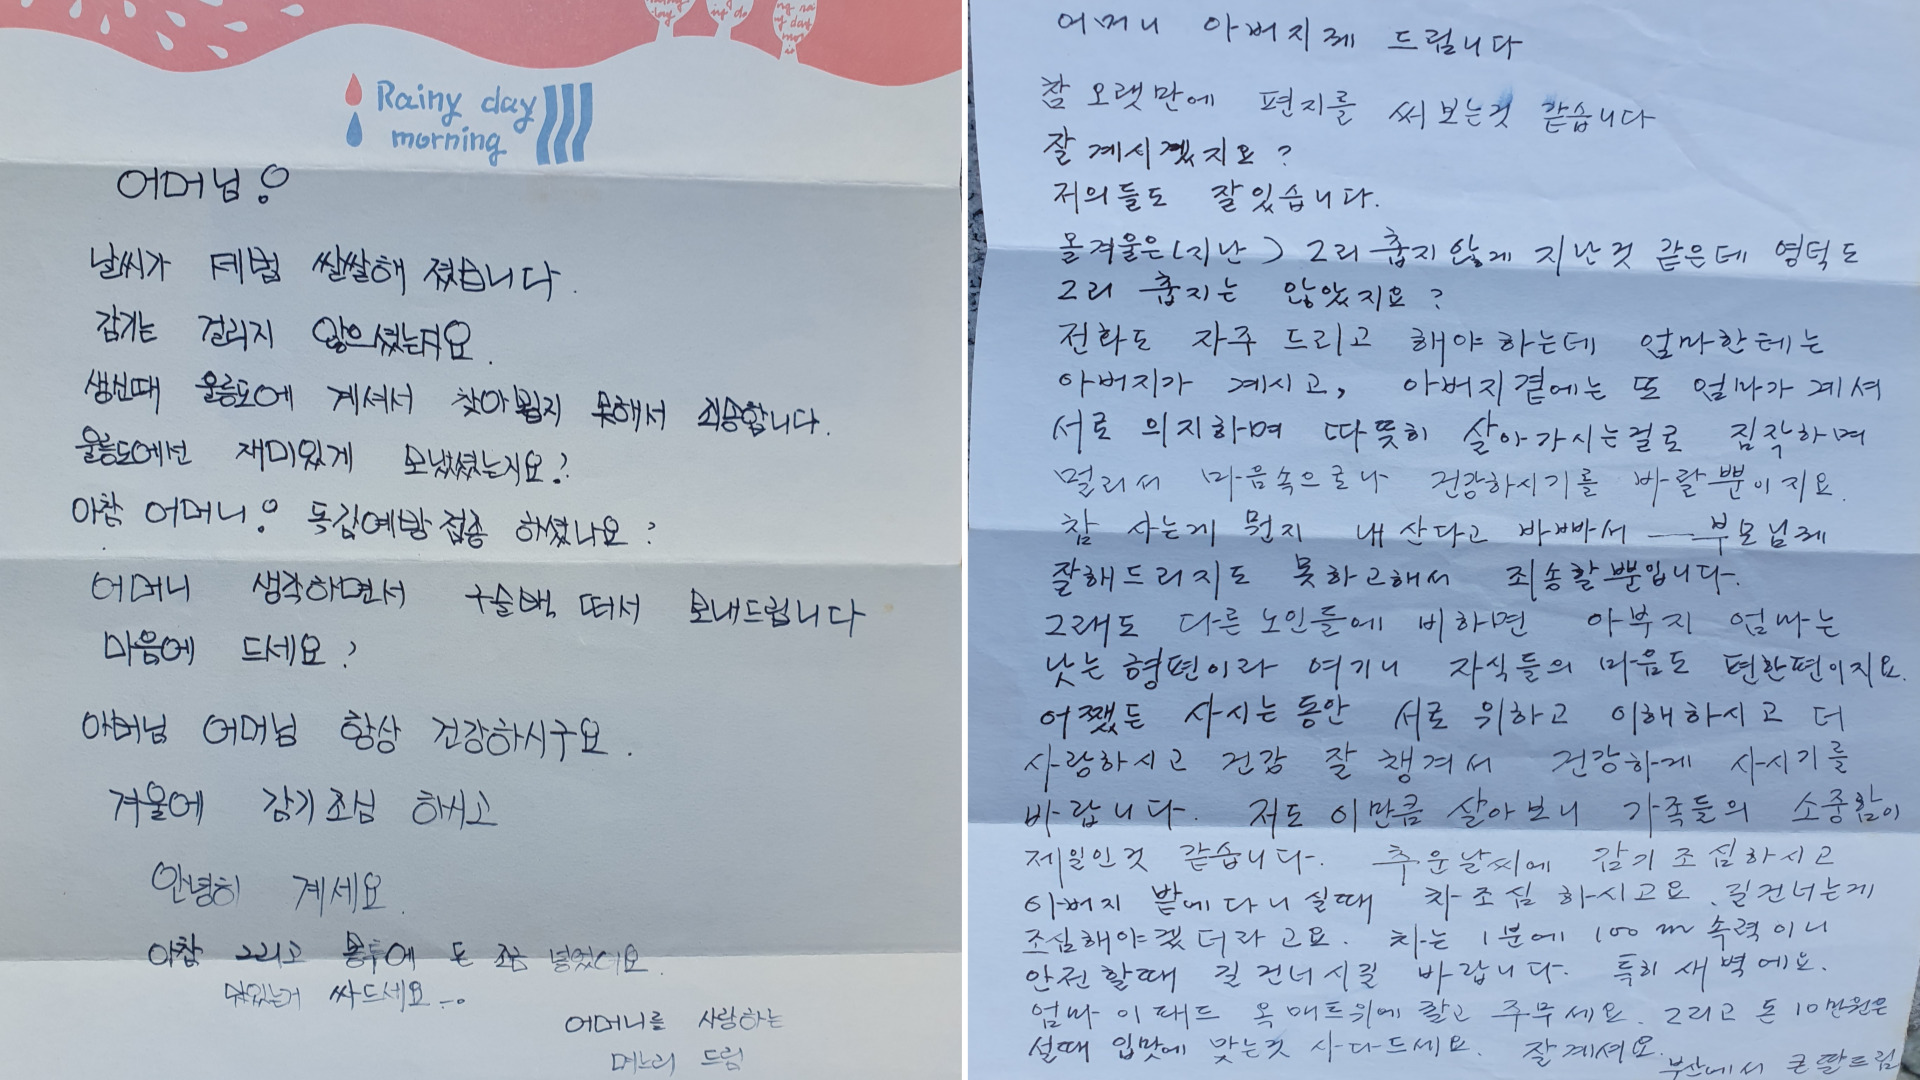 Rainy day
morning
어머님!
날씨가 제법 쌀쌀해 졌습니다.
감기는 걸리지 않으셨는지요.
생신때 울릉도에 계셔서 찾아뵙지 못해서 죄송합니다.
울릉도에선 재미있게 보냈셨는지요?
아참 어머니! 독감예방접종 하셨나요?
어머니 생각하면서 구슬백 떠서 보내드립니다
마음에 드세요?
아머님 어머님 항상 건강하시구요.
겨울에 감기조심 하시고
안녕히 계세요.
아참 그리고 봉투에 돈 조금 넣었어요.
맛있는거 싸드세요-.
어머니를 사랑하는
며느리 드림
어머니 아버지께 드립니다
참 오랫만에 편지를 써보는것 같습니다
잘 계시겠지요?
저의들도 잘있습니다.
올겨울은(지난) 그리 춥지 않게 지난것 같은데 영덕도
그리 춥지는 않았지요?
전화도 자주 드리고 해야하는데 엄마한테는
아버지가 계시고, 아버지곁에는 또 엄마가 계셔
서로 의지하며 따뜻히 살아가시는걸로 짐작하며
멀리서 마음속으로나 건강하시기를 바랄뿐이지요.
참 사는게 뭔지 내 산다고 바빠서 — 부모님께
잘해드리지도 못하고해서 죄송할뿐입니다.
그래도 다른 노인들에 비하면 아부지 엄마는
낫는 형편이라 여기니 자식들의 마음도 편한편이지요.
어쨌든 사시는동안 서로 위하고 이해하시고 더
사랑하시고 건강 잘 챙겨서 건강하게 사시기를
바랍니다. 저도 이만큼 살아보니 가족들의 소중함이
제일인것 같습니다. 추운날씨에 감기조심하시고
아버지 밭에다니실때 차조심 하시고요. 길건너는게
조심해야겠더라고요. 차는 1분에 100m 속력이니
안전할때 길건너시길 바랍니다. 특히 새벽에요.
엄마 이패드 옥매트위에 깔고 주무세요. 그리고 돈 10만원은
설때 입맛에 맞는것 사다드세요. 잘계셔요.
부산에서 큰딸드림